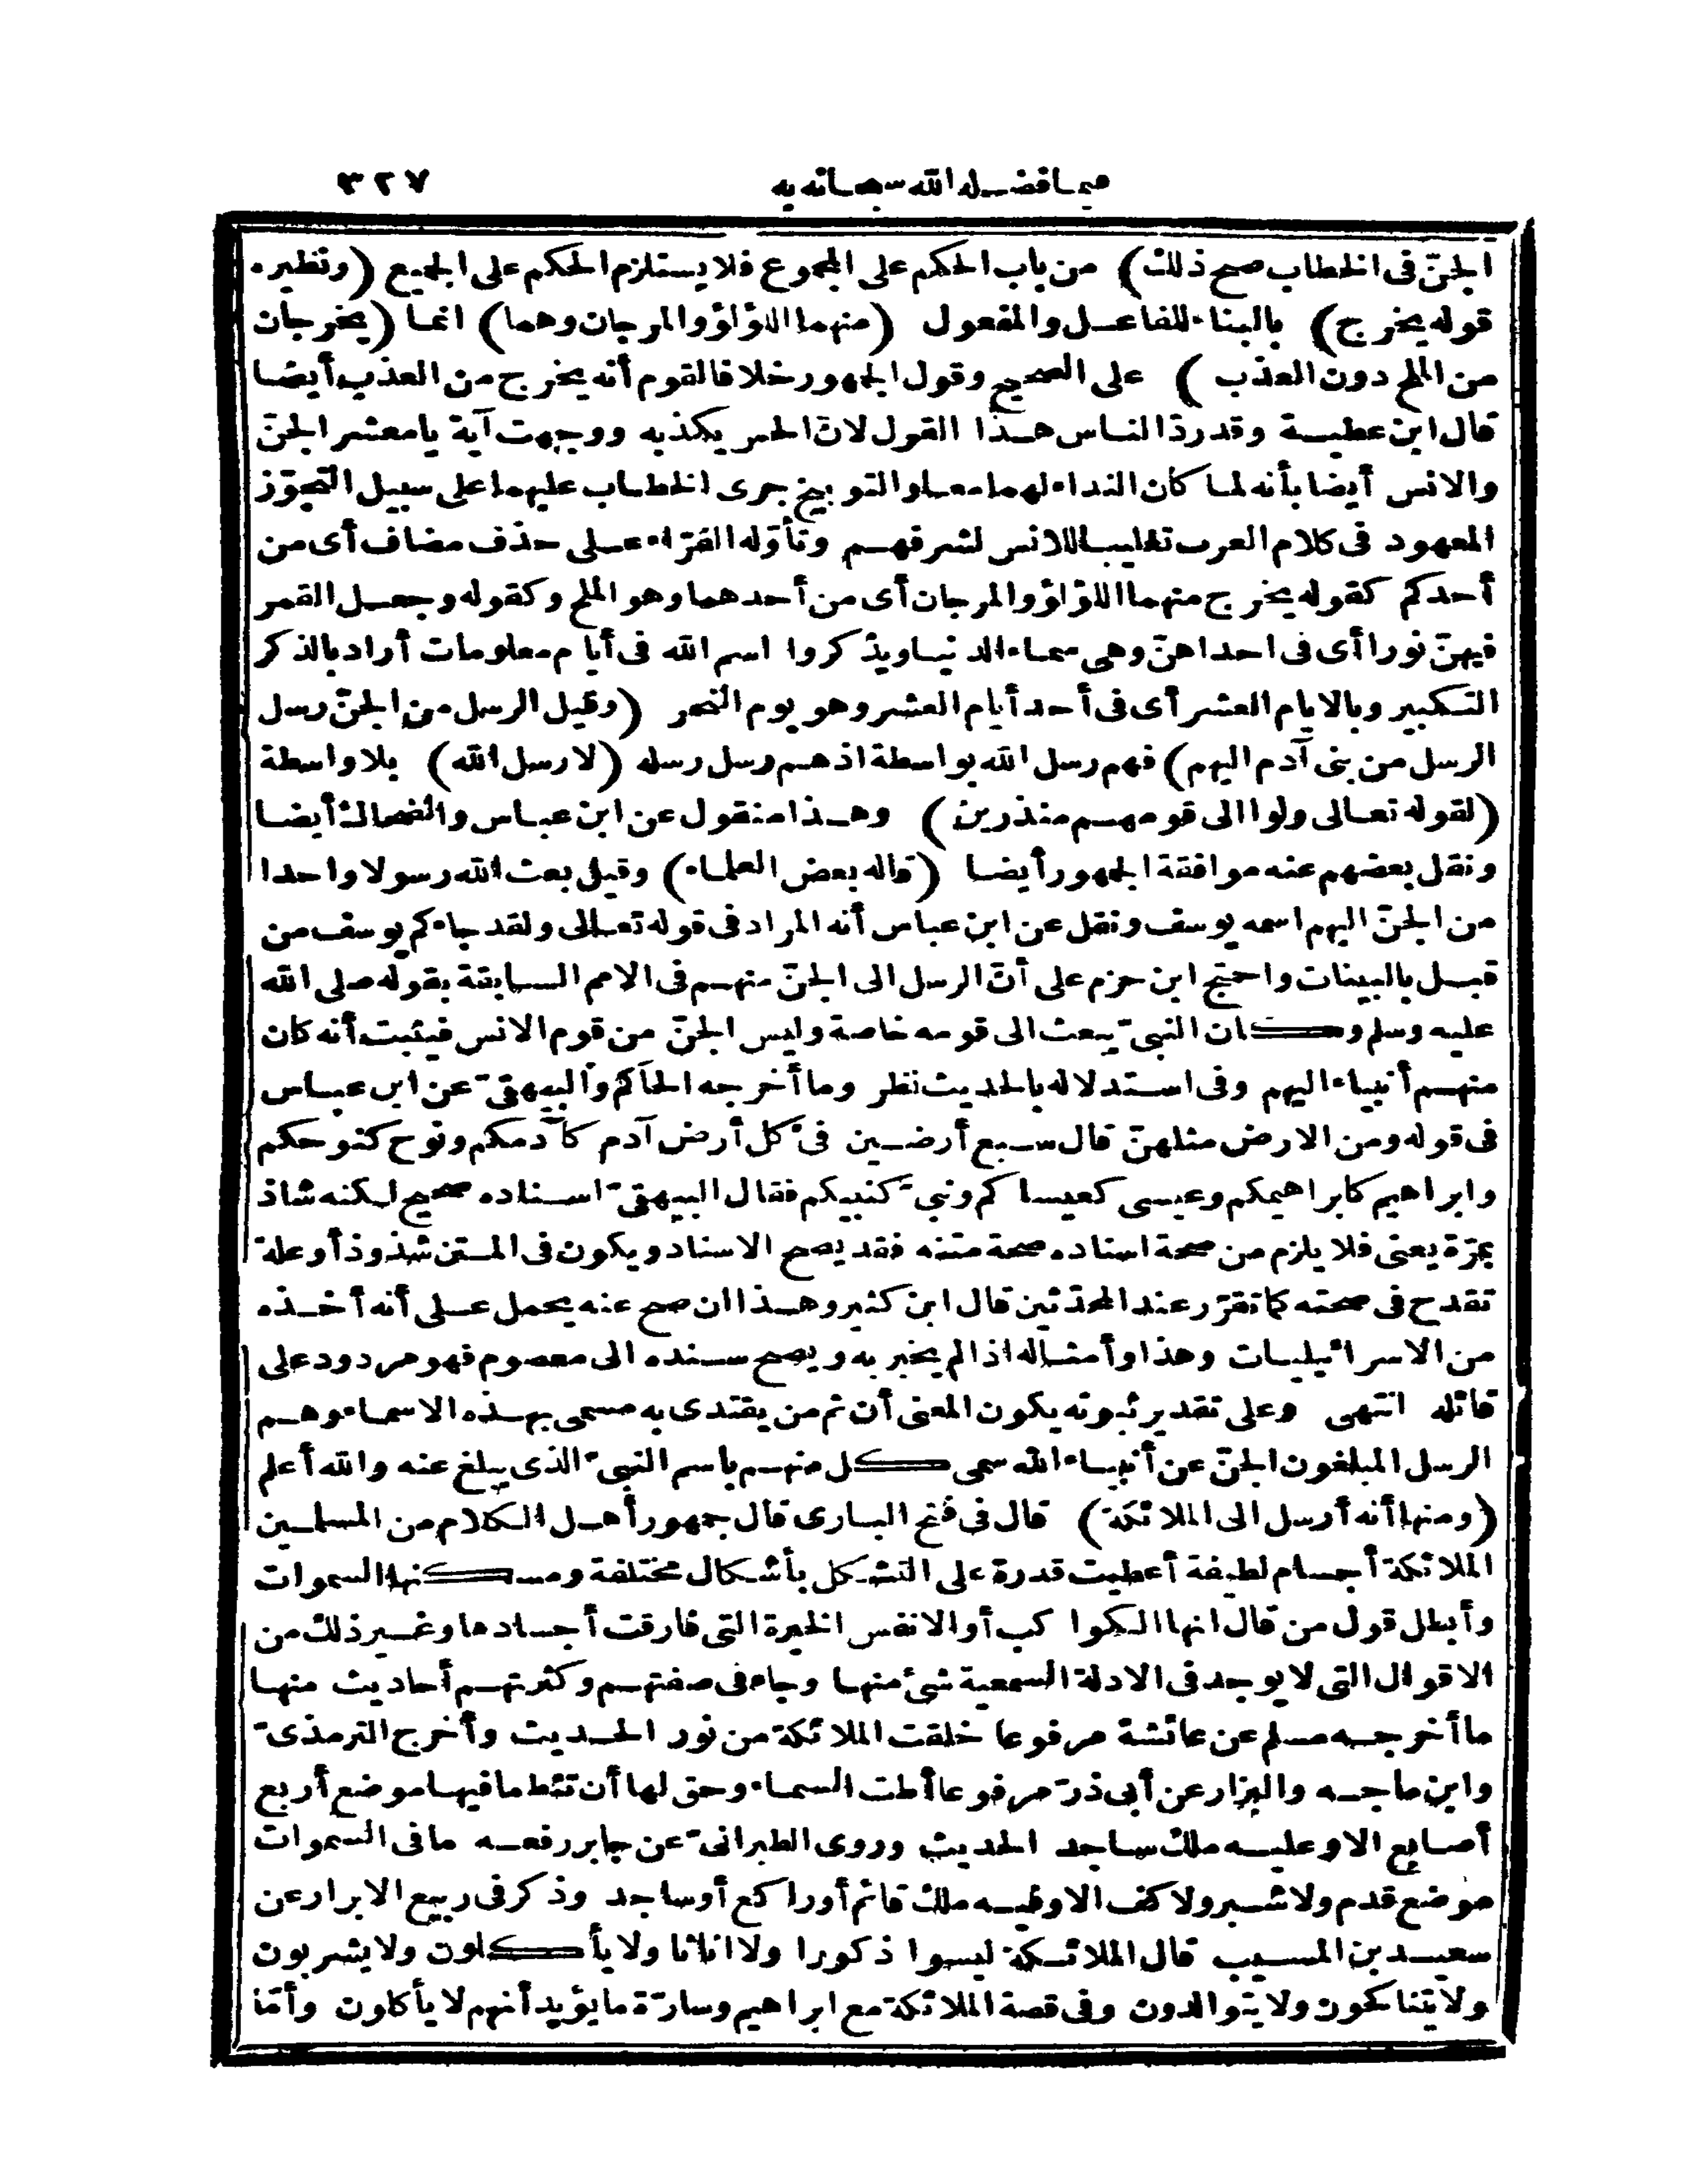 فيما فضله الله سبحانه به ٣٢٧
الجنّ فى الخطاب صح ذلك) من باب الحكم على المجموع فلا يستلزم الحكم على الجميع (ونظيره
قوله يخرج) بالبناء للفاعل والمفعول (منهما اللؤلؤ والمرجان وهما) انما (يخرجان
من الملح دون العذب) على الصحيح وقول الجمهور خلافا لقوم أنه يخرج من العذب أيضا
قال ابن عطية وقد ردّ الناس هذا القول لانّ الحس يكذبه ووجهت آية يا معشر الجنّ
والانس أيضا بأنه لما كان النداء لهما معا والتوبيخ جرى الخطاب عليهما على سبيل التجوّز
المعهود فى كلام العرب تغليبا للانس لشرفهم وتأوّله الفرّاء على حذف مضاف أى من
أحدكم كقوله يخرج منهما اللؤلؤ والمرجان أى من أحدهما وهو الملح وكقوله وجعل القمر
فيهنّ نورا أى فى احداهنّ وهى سماء الدنيا ويذكروا اسم الله فى أيام معلومات أراد بالذكر
التكبير وبالايام العشر أى فى أحد أيام العشر وهو يوم النحر (وقيل الرسل من الجنّ رسل
الرسل من بنى آدم اليهم) فهم رسل الله بواسطة اذ هم رسل رسله (لا رسل الله) بلا واسطة
(لقوله تعالى ولوا الى قومهم منذرين) وهذا منقول عن ابن عباس والضحاك أيضا
ونقل بعضهم عنه موافقة الجمهور أيضا (قاله بعض العلماء) وقيل بعث الله رسولا واحدا
من الجنّ اليهم اسمه يوسف ونقل عن ابن عباس أنه المراد فى قوله تعالى ولقد جاءكم يوسف من
قبل بالبينات واحتج ابن حزم على أنّ الرسل الى الجنّ منهم فى الامم السابقة بقوله صلى الله
عليه وسلم وكان النبىّ يبعث الى قومه خاصة وليس الجنّ من قوم الانس فيثبت أنه كان
منهم أنبياء اليهم وفى استدلاله بالحديث نظر وما أخرجه الحاكم والبيهقىّ عن ابن عباس
فى قوله ومن الارض مثلهنّ قال سبع أرضين فى كل أرض آدم كآدمكم ونوح كنوحكم
وابراهيم كابراهيمكم وعيسى كعيساكم ونبىّ كنبيكم فقال البيهقىّ اسناده صحيح لكنه شاذ
بمرّة يعنى فلا يلزم من صحة اسناده صحة متنه فقد يصح الاسناد ويكون فى المتن شذوذ أو علة
تقدح فى صحته كما تقرّر عند المحدّثين قال ابن كثير وهذا ان صح عنه يحمل على أنه أخذه
من الاسرائيليات وهذا وأمثاله اذا لم يخبر به ويصح سنده الى معصوم فهو مردود على
قائله انتهى وعلى تقدير ثبوته يكون المعنى أن ثم من يقتدى به مسمى بهذه الاسماء وهم
الرسل المبلغون الجنّ عن أنبياء الله سمى كل منهم باسم النبىّ الذى يبلغ عنه والله أعلم
(ومنها أنه أرسل الى الملائكة) قال فى فتح البارى قال جمهور أهل الكلام من المسلمين
الملائكة أجسام لطيفة أعطيت قدرة على التشكل بأشكال مختلفة ومسكنها السموات
وأبطل قول من قال انها الكواكب أو الانفس الخيرة التى فارقت أجسادها وغير ذلك من
الاقوال التى لا يوجد فى الادلة السمعية شئ منها وجاء فى صفتهم وكثرتهم أحاديث منها
ما أخرجه مسلم عن عائشة مرفوعا خلقت الملائكة من نور الحديث وأخرج الترمذىّ
وابن ماجه والبزار عن أبى ذرّ مرفوعا أطت السماء وحق لها أن تئط ما فيها موضع أربع
أصابع الا وعليه ملك ساجد الحديث وروى الطبرانىّ عن جابر رفعه ما فى السموات
موضع قدم ولا شبر ولا كف الا وفيه ملك قائم أو راكع أو ساجد وذكر فى ربيع الابرار عن
سعيد بن المسيب قال الملائكة ليسوا ذكورا ولا اناثا ولا يأكلون ولا يشربون
ولا يتناكحون ولا يتوالدون وفى قصة الملائكة مع ابراهيم وسارّة ما يؤيد أنهم لا يأكلون وأمّا